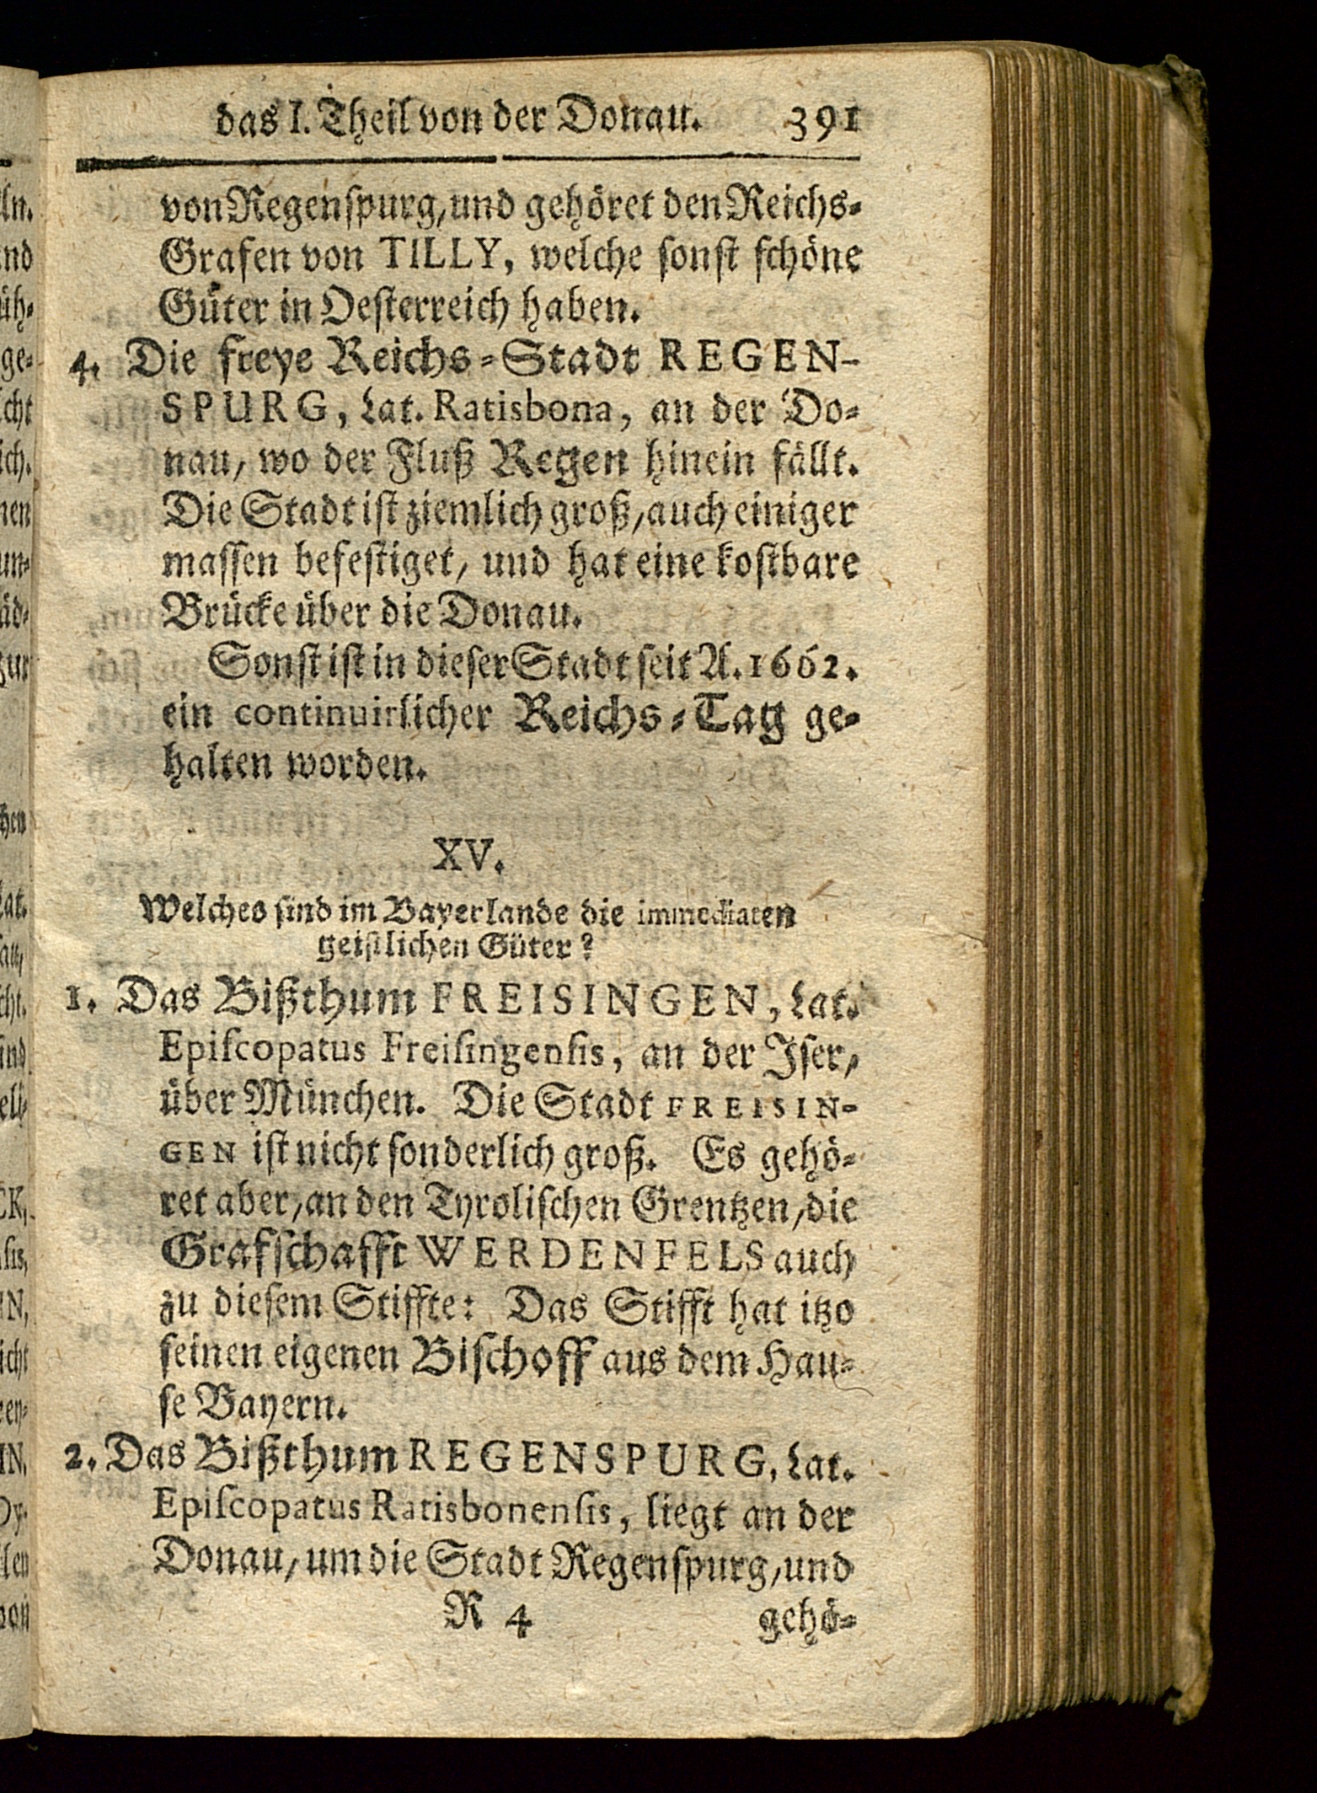 das I. Theil von der Donau. 391
von Regenspurg, und gehöret den Reichs-
Grafen von TILLY, welche sonst schöne
Güter in Oesterreich haben.
4. Die freye Reichs-Stadt REGEN-
SPURG, Lat. Ratisbona, an der Do-
nau, wo der Fluß Regen hinein fällt.
Die Stadt ist ziemlich groß, auch einiger
massen befestiget, und hat eine kostbare
Brücke über die Donau.
Sonst ist in dieser Stadt seit A. 1662.
ein continuirlicher Reichs-Tag ge-
halten worden.
XV.
Welches sind im Bayerlande die immediaten
geistlichen Güter?
1. Das Bißthum FREISINGEN, Lat.
Episcopatus Freisingensis, an der Iser,
über München. Die Stadt FREISIN-
GEN ist nicht sonderlich groß. Es gehö-
ret aber, an den Tyrolischen Grentzen, die
Grafschafft WERDENFELS auch
zu diesem Stiffte: Das Stifft hat itzo
seinen eigenen Bischoff aus dem Hau-
se Bayern.
2. Das Bißthum REGENSPURG, Lat.
Episcopatus Ratisbonensis, liegt an der
Donau, um die Stadt Regenspurg, und
R 4 gehö-